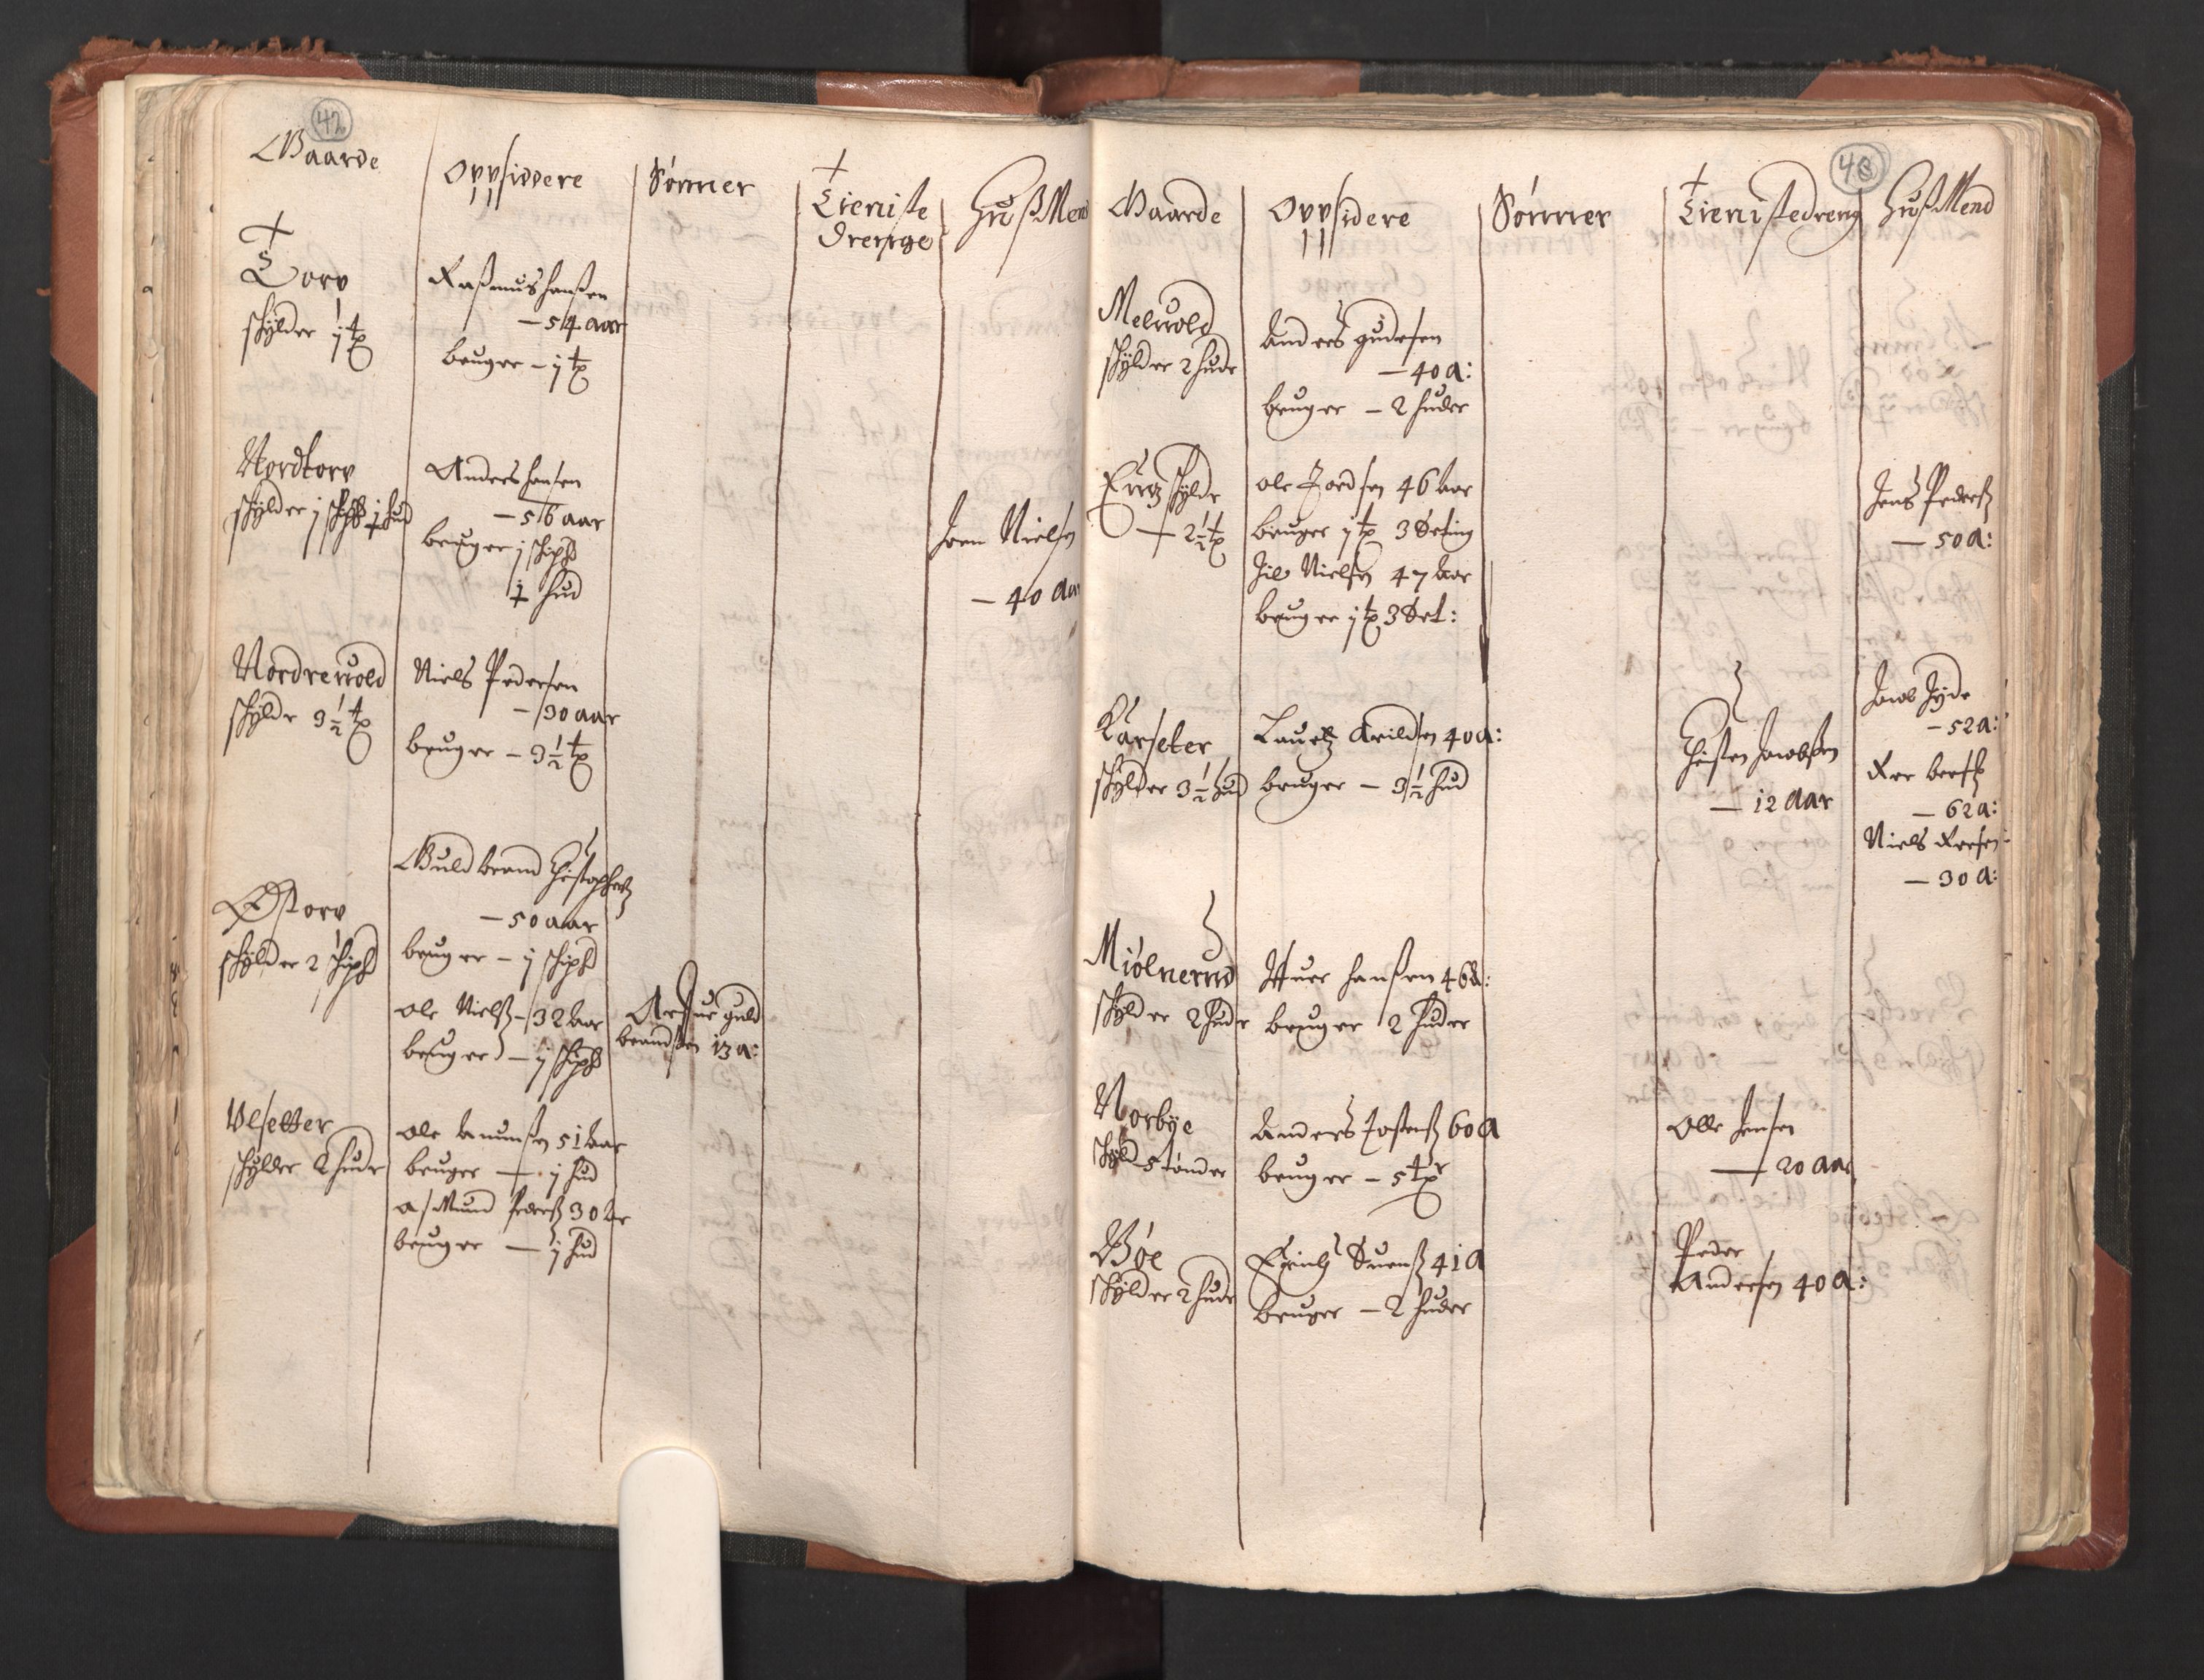 42
Gaarde
Oppsidere
Sønner
Tieniste
drenge
HußMend
Torp
schylder j tp
Raßmus hanßen
— 54 aar
bruger – j tp
Nordtorp
schylder j schipd j hud
Anders hansen
— 56 aar
bruger j schipd
j hud
Joen Nielsen
— 40 aar
Nordreuold
schylder 3 ½ tp
Niels Pedersen
— 30 aar
bruger – 3 ½ tp
Østorp
schylder 2 schipd
Guldbrand Christophers
— 50 aar
bruger – j schipd
ole Nielß – 32 aar
bruger – j schipd
guld
brandsen 13 a:
Vlsetter
schylder 2 hude
ole Amunßen 51 aar
bruger — j hud
asMund Pederß 30 aar
bruger — j hud
43
Gaarde
Oppsidere
Sønner
Tienistedreng
HußMend
Meluold
schylder 2 hude
Anders gudesen
— 40 a:
bruger – 2 huder
schylder
— 2 ½ tp
ole Jordsen 46 aar
bruger j tp 3 Seting
Nielsen 47 aar
bruger j tp 3 Set:
Jens Pederß
— 50 a:
Karseter
schylder 3 ½ hud
Lauritz Arildsen 40 a:
bruger – 3 ½ hud
Christen Jacobsen
— 12 aar
Jacob Jyde
— 52 a:
— 62 a:
Niels
— 30 a:
Miølnerud
schylder 2 hude
Iffuer hanßen 46 a:
bruger 2 huder
Norbye
schyld 5 tønder
Anders Jostenß 60 a
bruger – 5 tpr
Olle Jensen
— 20 aar
Bøe
schylder 2 hude
Erich Suenß 41 a
bruger – 2 huder
Peder
Andersen 40 a: